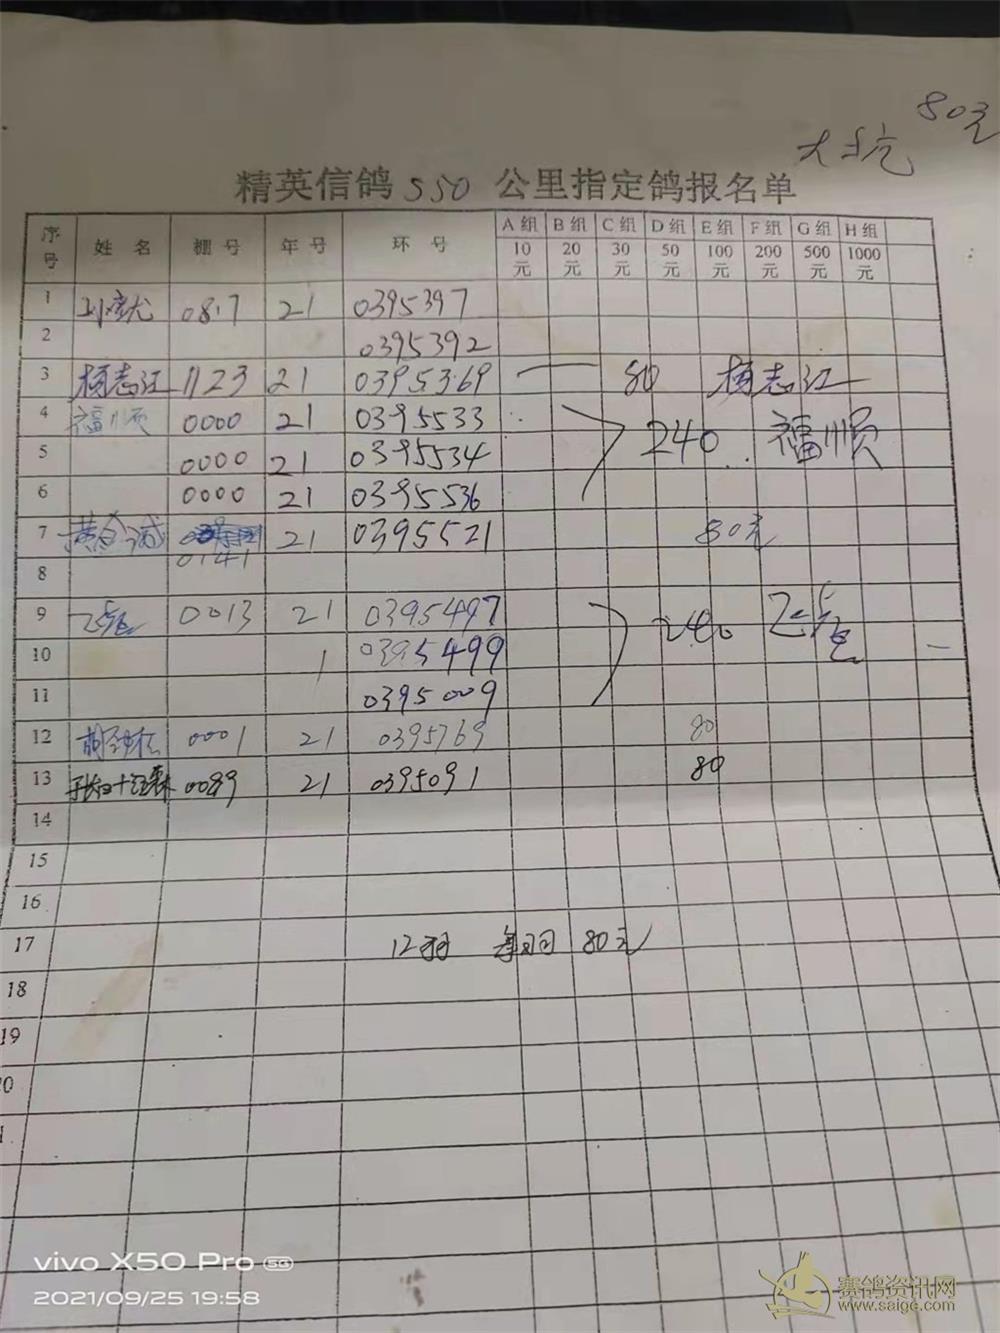 80元
大坑
精英信鸽 550 公里指定鸽报名单
序号 姓 名 棚 号 年 号 环 号 A组 B组 C组 D组 E组 F组 G组 H组
10元 20元 30元 50元 100元 200元 500元 1000元
1 0817 21 0395397
2 0395392
3 杨志江 1123 21 0395369 80 杨志江
4 福顺 0000 21 0395533
5 0000 21 0395534 240 福顺
6 0000 21 0395536
7 21 0395521 80元
0141
8
9 0013 21 0395497
10 1 0395499 240
11 0395009
12 0001 21 0395769 80
13 0099 21 0395091 80
14
15
16
17 12羽 每羽 80元
18
19
vivo X50 Pro 5G
2021/09/25 19:58
赛鸽资讯网
www.saige.com